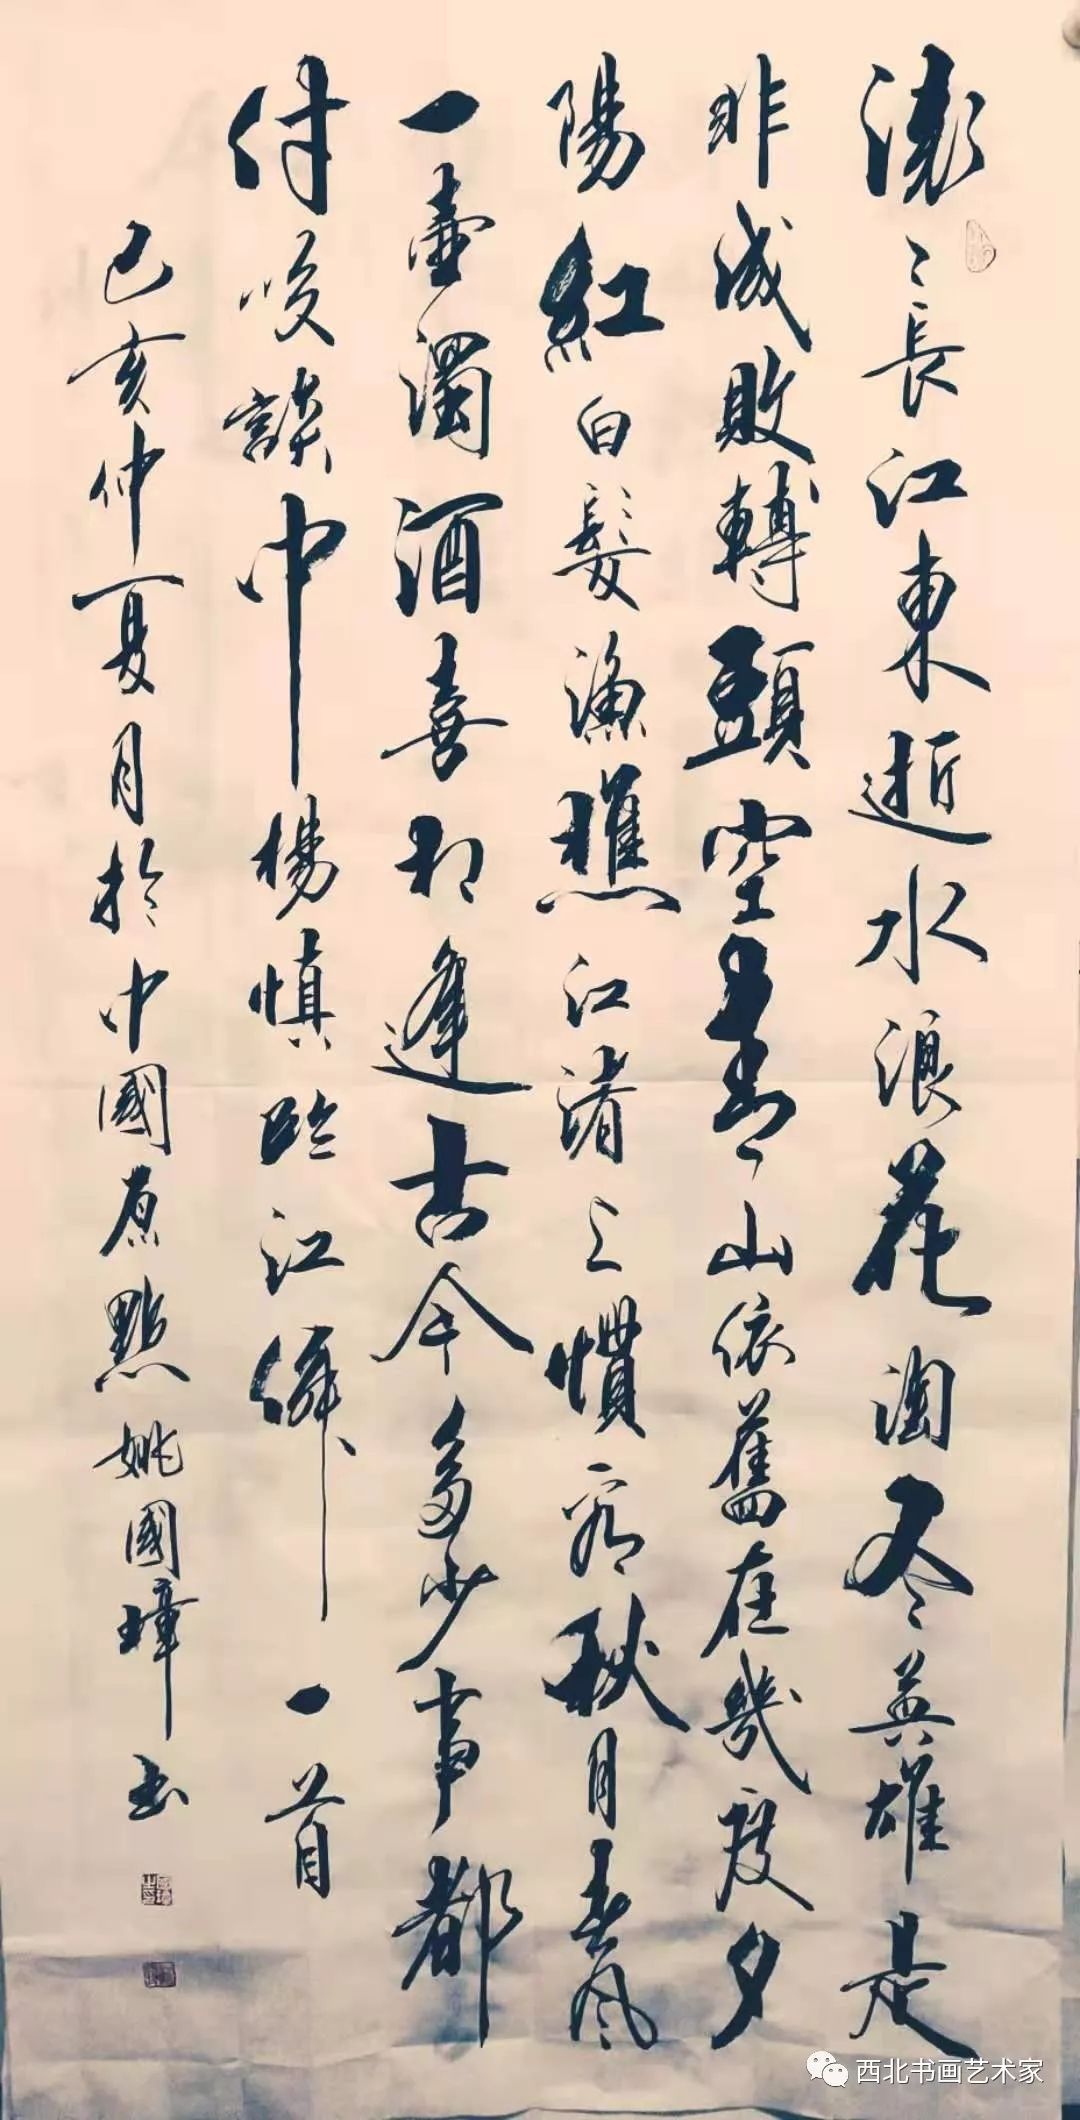 滚〻長江東逝水浪花淘尽英雄是
非成敗轉頭空青山依舊在幾度夕
陽紅白髮漁樵江渚上慣看秋月春风
一壺濁酒喜相逢古今多少事都
付咲談中楊慎臨江僊一首
己亥仲夏月於中國原點姚國璋书
西北书画艺术家